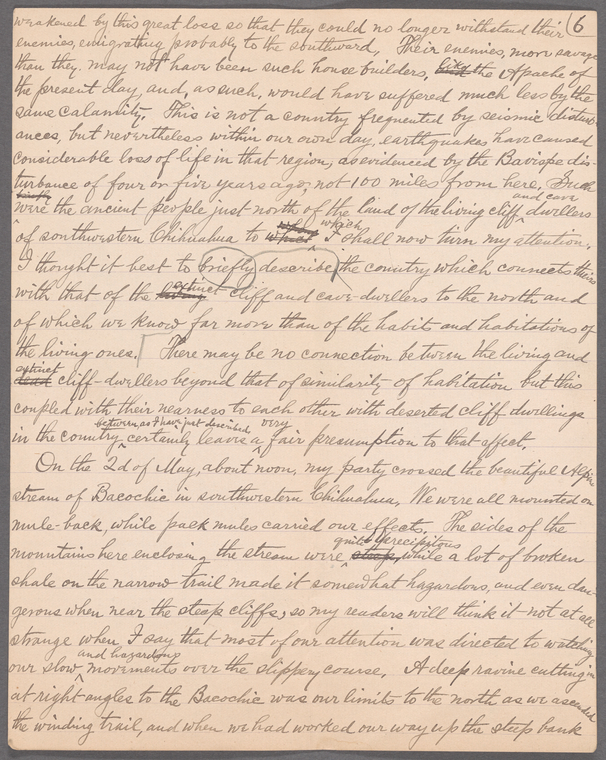 weakened by this great loss so that they could no longer withstand their 6
enemies, emigrating probably to the southward. Their enemies, more savage
than they, may not have been such house builders, like the Apache of
the present day, and, as such, would have suffered much less by the
same calamity. This is not a country frequented by seismic disturb-
ances, but nevertheless within our own day, earthquakes have caused
considerable loss of life in that region, as evidenced by the Bavispe dis-
turbance of four or five years ago, not 100 miles from here. Such
and cave
were the ancient people just north of the land of the living cliff dwellers
which
of southwestern Chihuahua to which I shall now turn my attention.
I thought it best to briefly describe the country which connects theirs
extinct
with that of the living cliff and cave-dwellers to the north and
of which we know far more than of the habits and habitations of
the living ones. There may be no connection between the living and
extinct
dead cliff-dwellers beyond that of similarity of habitation but this
coupled with their nearness to each other with deserted cliff dwellings
between, as I have just described, very
in the country certainly leaves a fair presumption to that effect.
On the 2d of May, about noon, my party crossed the beautiful Alpine
stream of Bacochic in southwestern Chihuahua. We were all mounted on
mule-back, while pack mules carried our effects. The sides of the
quite precipitous
mountains here enclosing the stream were steep, while a lot of broken
shale on the narrow trail made it somewhat hazardous, and even dan-
gerous when near the steep cliffs, so my readers will think it not at all
strange when I say that most of our attention was directed to watching
and hazardous
our slow movements over the slippery course. A deep ravine cutting in
at right angles to the Bacochic was our limits to the north as we ascended
the winding trail, and when we had worked our way up the steep bank